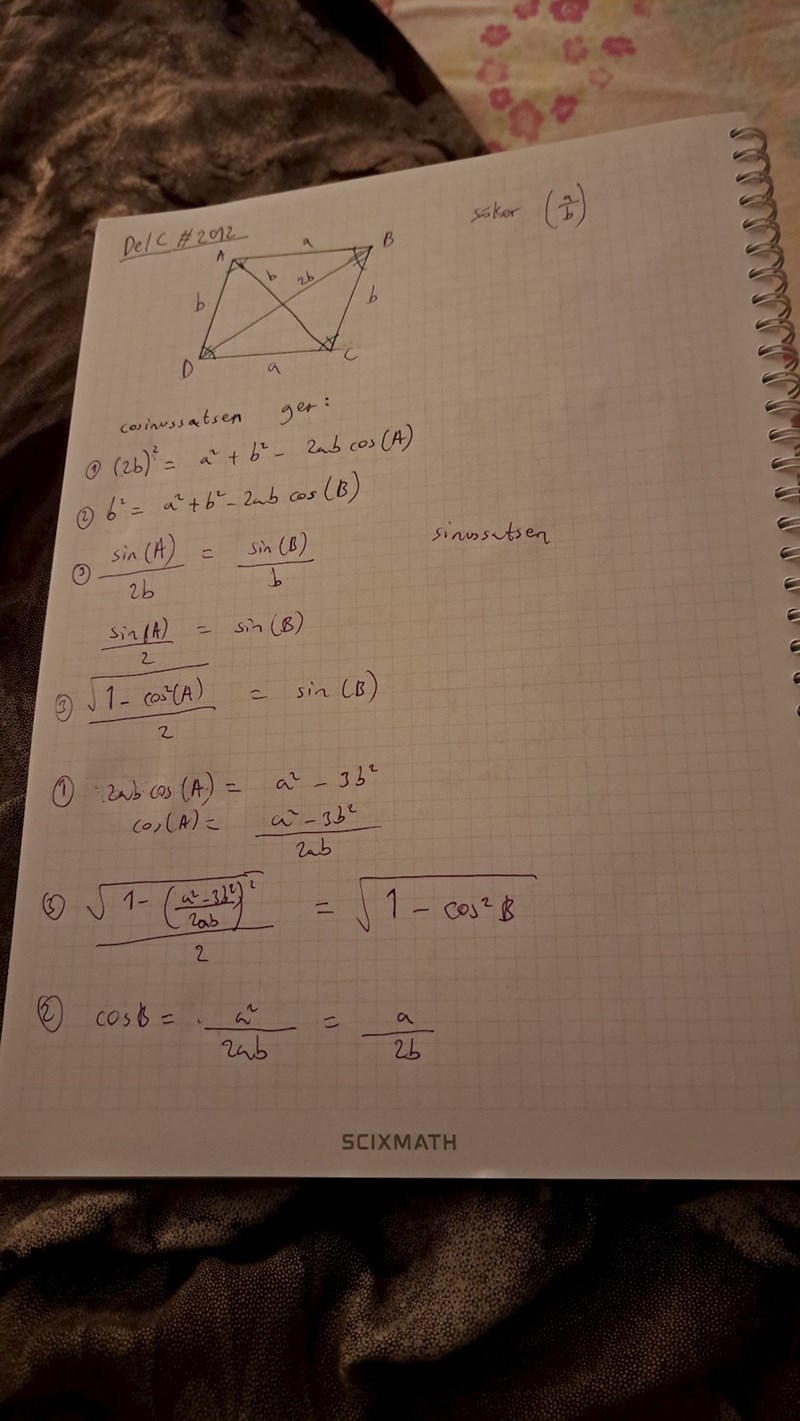 söker (a/b)
Del C #2012
A a B
b b 2b b
D a C
cosinussatsen ger:
① (2b)² = a² + b² - 2ab cos(A)
② b² = a² + b² - 2ab cos(B)
③ sin(A)/2b = sin(B)/b sinussatsen
sin(A)/2 = sin(B)
③ √(1 - cos²(A))/2 = sin(B)
① 2ab cos(A) = a² - 3b²
cos(A) = (a² - 3b²)/2ab
③ √(1 - ((a² - 3b²)/2ab)²)/2 = √(1 - cos² B)
② cosB = a²/2ab = a/2b
SCIXMATH